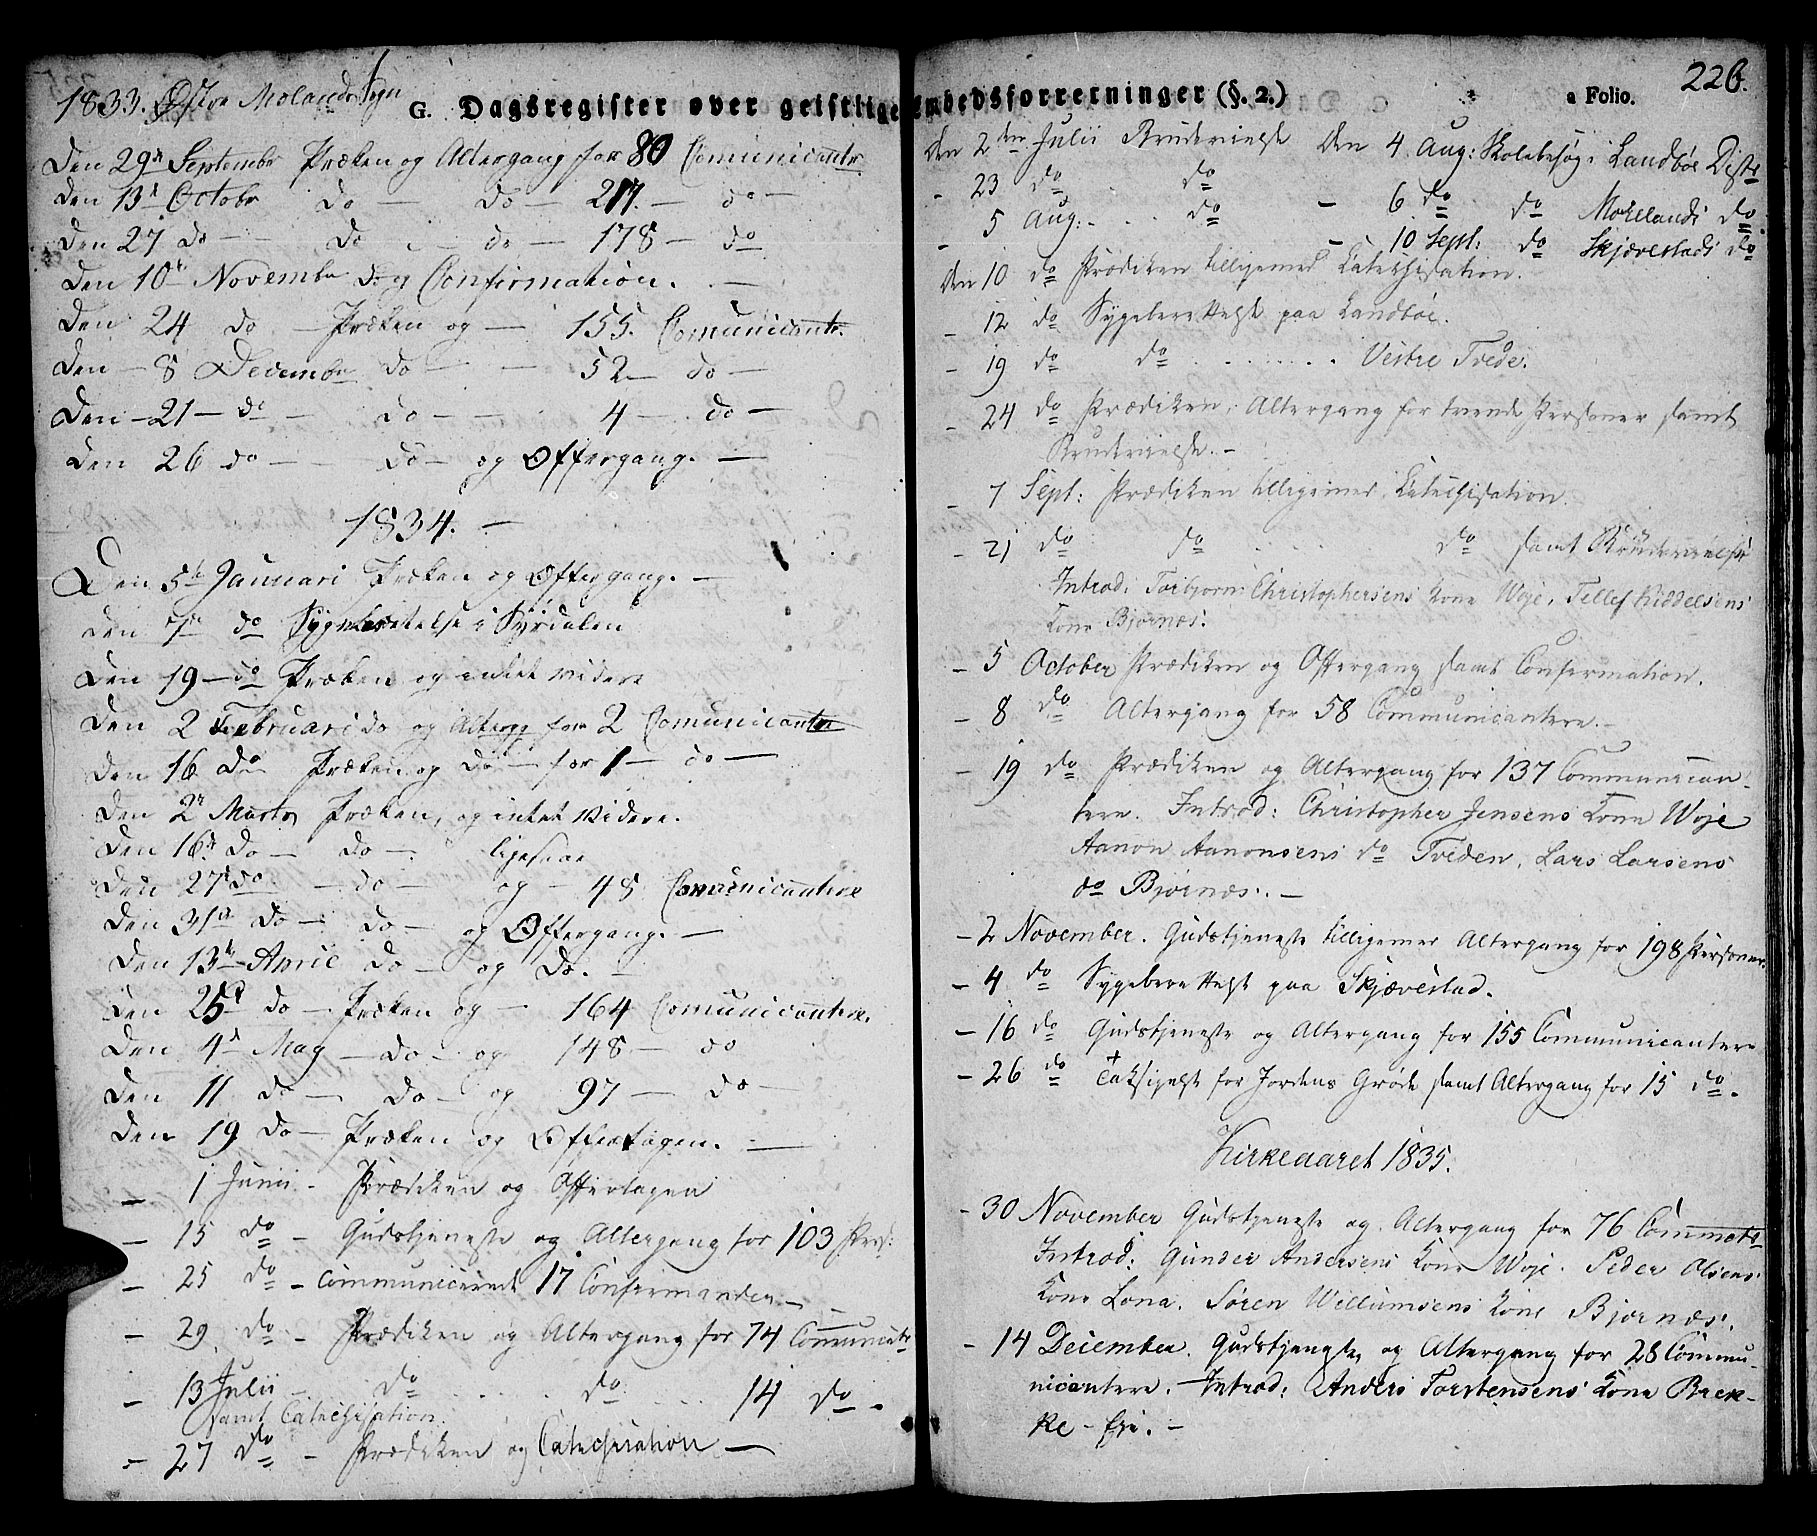 1833. Østre Molands Sogn
G. Dagsregister over geistlige Embedsforretninger (§. 2.)
a Folio. 226.
Den 29de Septembr Præken og Altergang for 80 Comunicantr.
Den 13d Octobr do — do — 217. — do —
Den 27 do — do — do — 178 — do
Den 10de Novembr do og Confirmation. —
Den 24 do — Præken og — 155. Comunicantr.
Den — 8 Decembr do — 52 — do —
Den — 21 — do — do — 4 — do —
Den 26 do — do — og Offergang. —
1834. —
Den 5te Januari Præken og Offergang. —
Den 7de do Sygeberettelse i Syrdalen
Den 19 — do Præken og intet videre
Den 2 Februari do og Alterg for 2 Comunicantr
Den 16 do Præken og do — for 1 — do —
Den 2n Marts Præken, og intet videre.
Den 16d do — do — ligesaa
Den 27d do — do — og — 48 Comunicantere
Den 31te do — do — og Offergang. —
Den 13de April do — og do. —
Den 25d do — Præken og — 164 Comunicantere.
Den 4d May — do — og 148 — do
Den 11 do — do — og 97 — do —
Den 19 do — Præken og Offertagen. —
— 1 Junii — Prædiken og Offertagen
— 15 do — Gudstjeneste og Altergang for 103 Pers:
— 25 do — Communicerede 17 Confirmander —
— 29 do — Prædiken og Altergang for 74 Communictr
— 13 Julii — do .... do ... 14 do —.
samt Catechisation.
— 27 do — Prædiken og Catechisation —
den 2den Julii Brudevielse
— 23 do do
— 5 Aug: .. do
Den 4 Aug: Skolebesøg i Landbøe Distr
— 6 do do Mollands do
— 10 Sept: do Skjævestads do
den 10 do Prædiken tilligemed Catechisation.
— 12 do Sygeberettelse paa Landbøe.
— 19 do do ....... Vestre Tvede.
— 24 do Prædiken, Altergang for tvende Personer samt
Brudevielse. —
— 7 Sept: Prædiken tilligemed Catechisation
— 21 do do .... do samt Brudevielse
Introd: Torbjorn Christophersens Kone Woje, Tellef Kiddelsens
Kone Bjornæs.
— 5 October Prædiken og Offergang samt Confermation.
— 8 do Altergang for 58 Communicantere. —
— 19 do Prædiken og Altergang for 137 Communican-
tere. Introd: Christopher Jensens Kone Woje
Aanon Aanonsens do Tveden, Lars Larsens
do Bjørnæs. —
— 2 November. Gudstjeneste tilligemed Altergang for 198 Personer.
— 4 do Sygeberettelse paa Skjævestad.
— 16 do Gudstjeneste og Altergang for 155 Communicantere
— 26 do Taksigelse for Jordens Grøde samt Altergang for 15 do.
Kirkeaaret 1835.
— 30 November Gudstjeneste og Altergang for 76 Commctr
Introd: Gunder Andersens Kone Woje. Peder Olsens
Kone Lona. Søren Willumsens Kone Bjørnæs.
— 14 December. Gudstjeneste og Altergang for 28 Commu-
nicantere. Introd: Anders Torstensens Kone Brek-
ke — fri. —